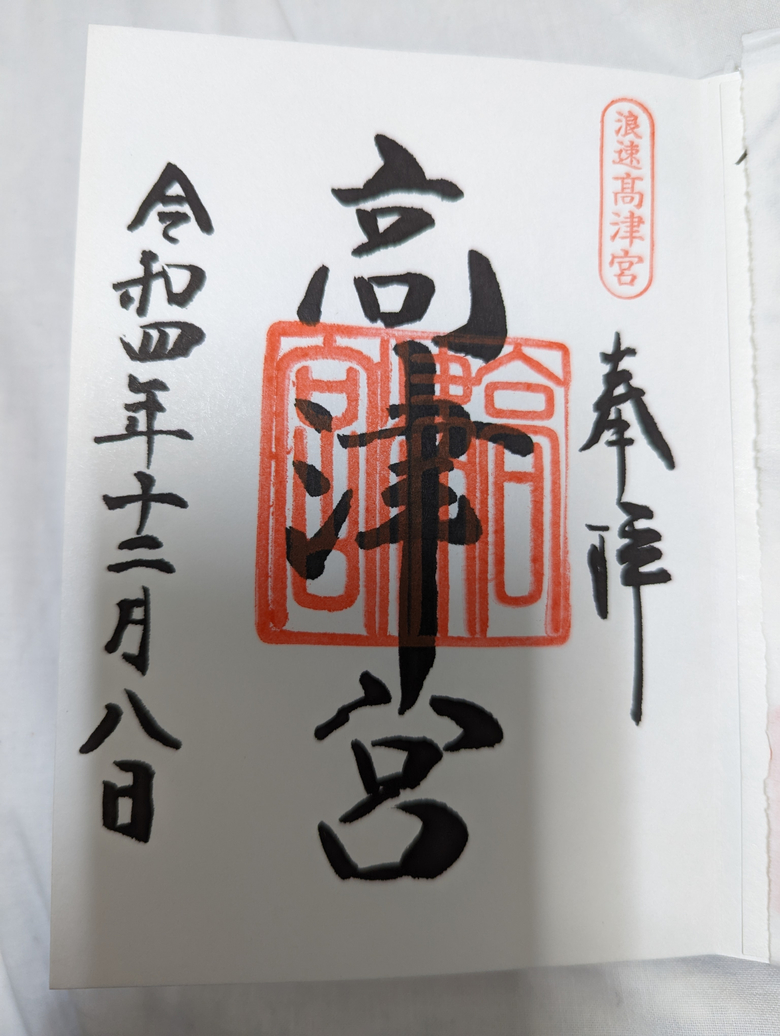 浪速髙津宮
奉拝
高津宮
高津宮
令和四年十二月八日